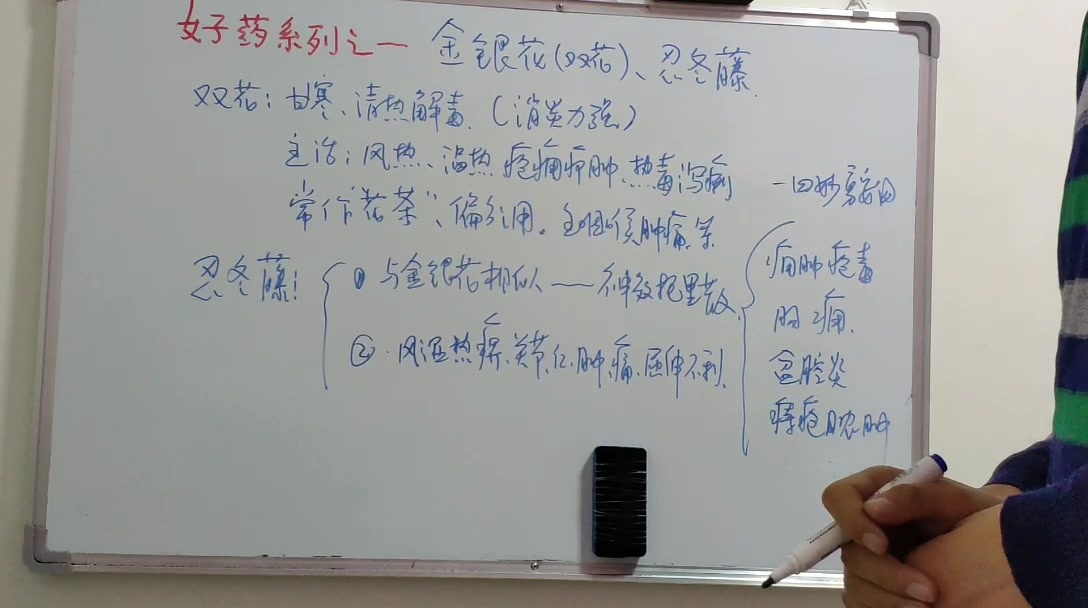 好药系列之一 金银花(双花)、忍冬藤
双花:甘寒、清热解毒.(消炎力强)
主治:风热、温热 疮痈疖肿、热毒泻痢 —四妙勇安
常作"花茶"、偏引用。主咽喉肿痛等
忍冬藤:
① 与金银花相似——神效托里散
② 风湿热痹、关节红肿痛、屈伸不利.
痈肿疮毒
肠痈.
盆腔炎
痔疮脓肿